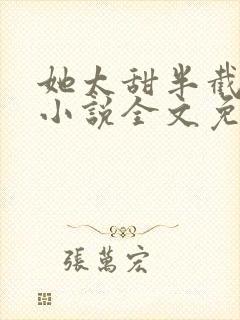 她太甜半截
小說全文免
張萬宏